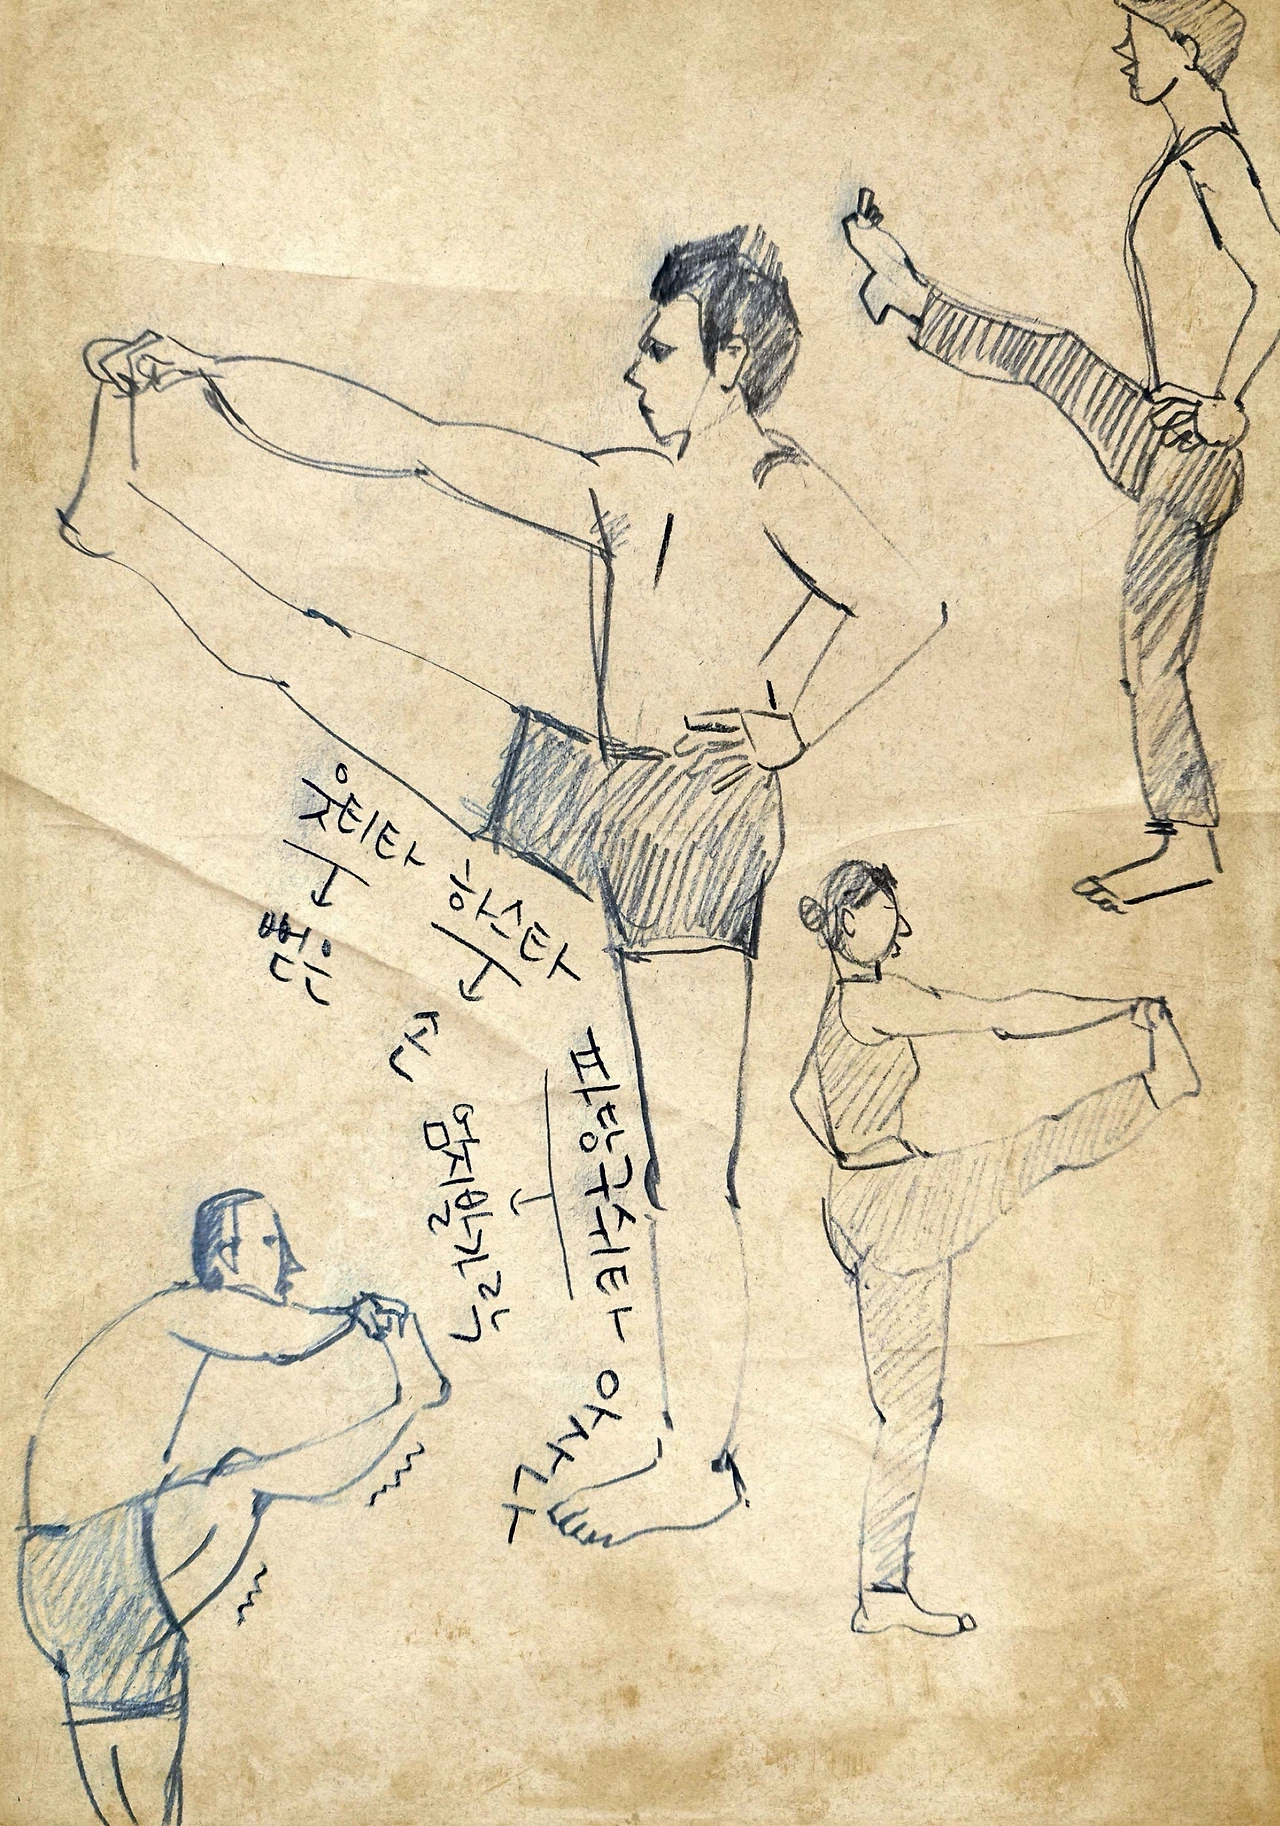 웃티타 하스타 파탕구쉬타 아사나
뻗은
손
엄지발가락